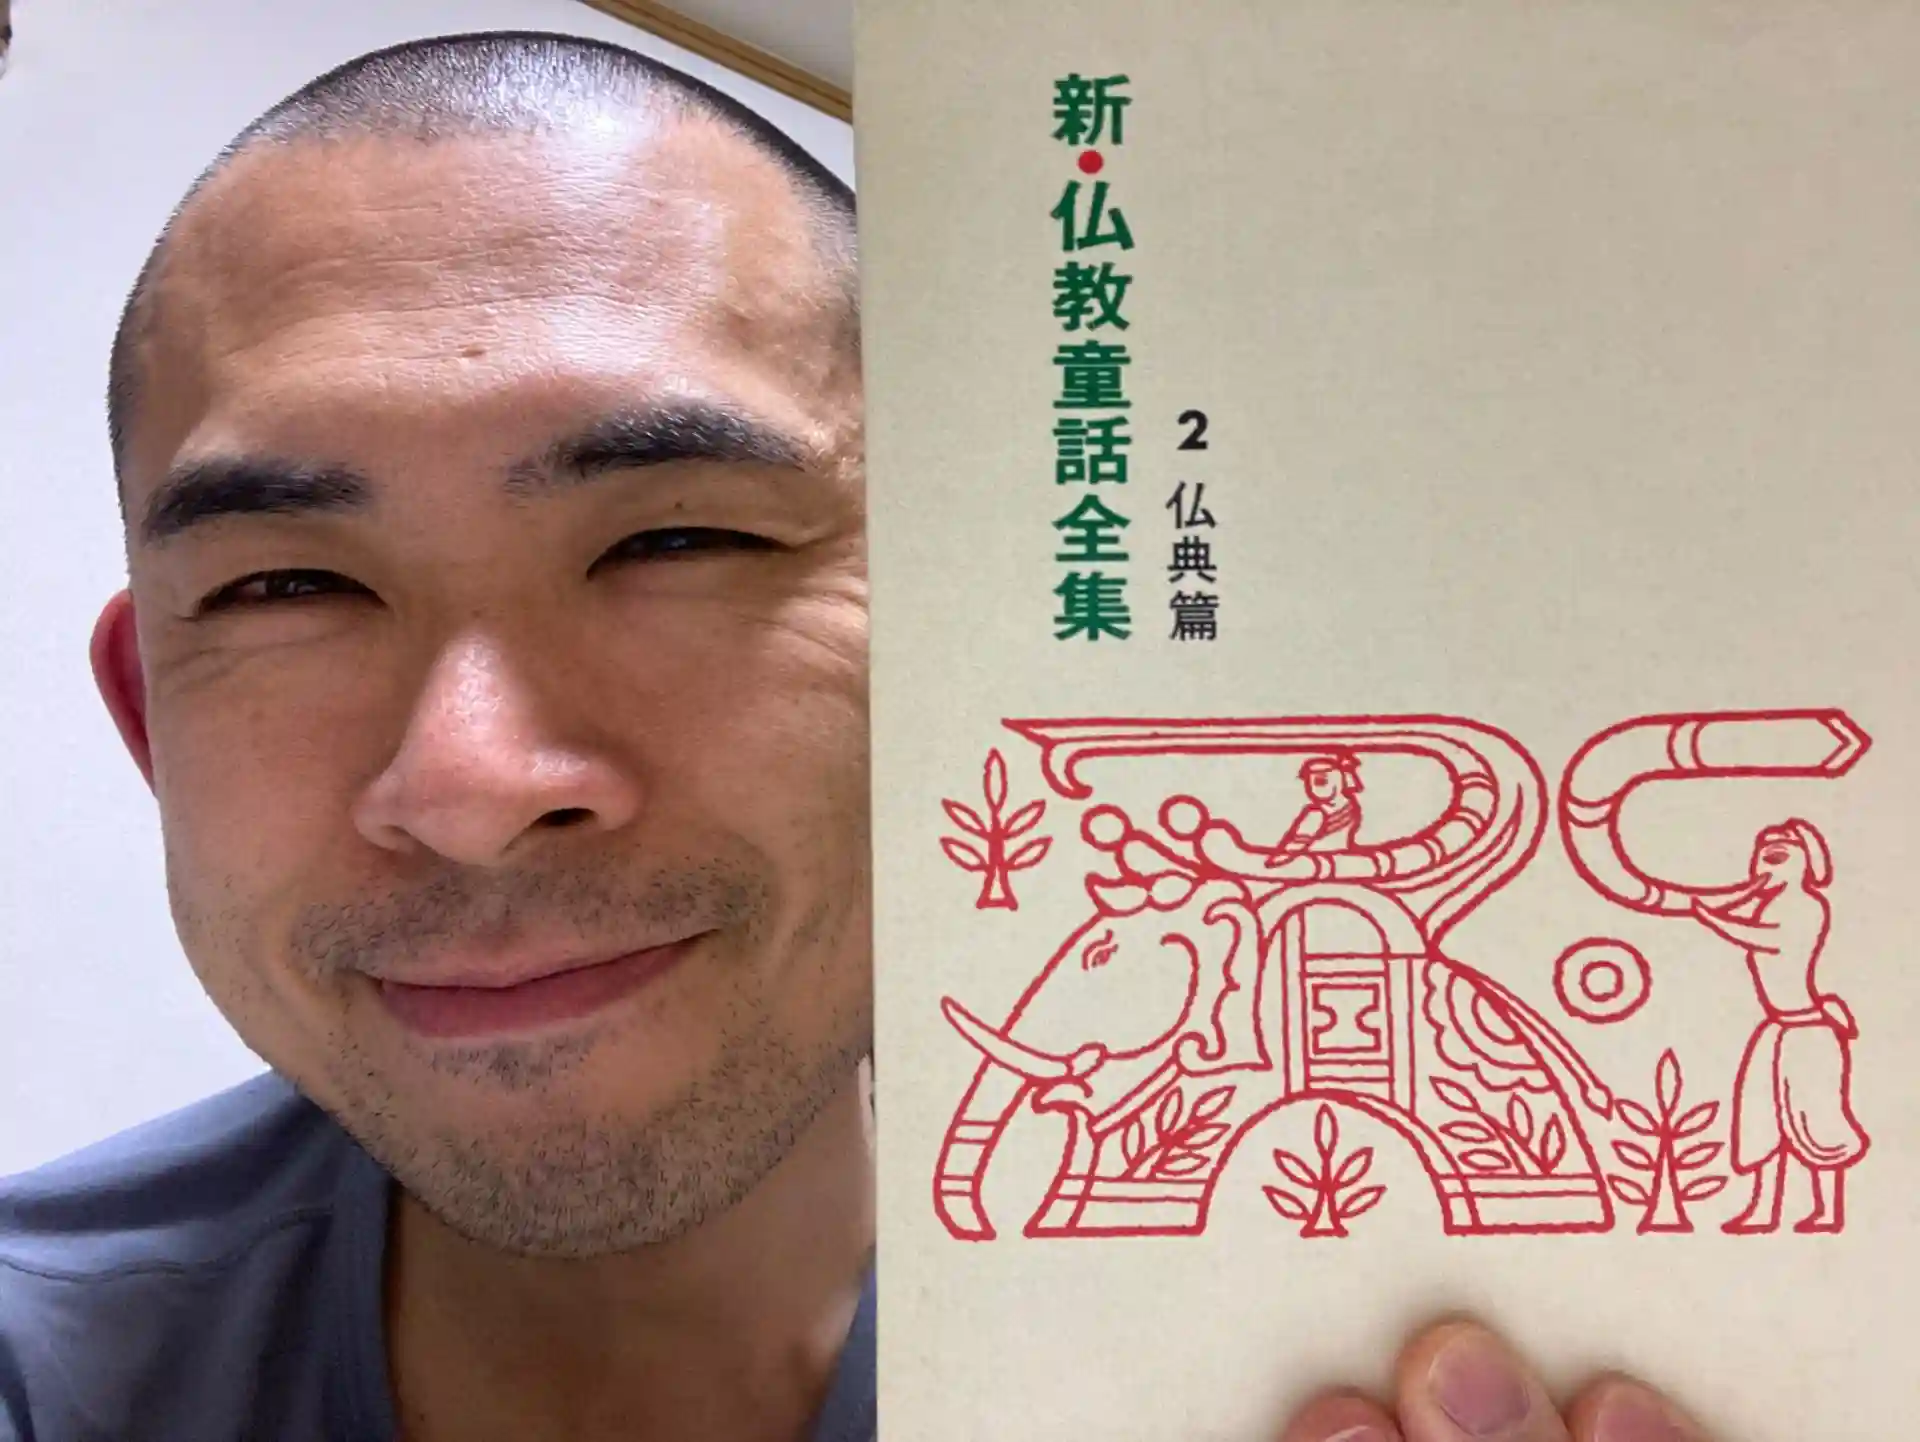 新・仏教童話全集
2 仏典篇